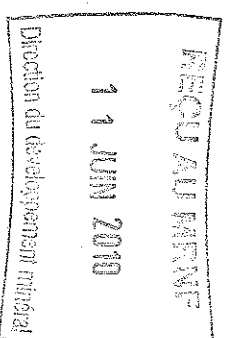 REÇU AU MRNF
11 JUIN 2010
Direction du développement minéral